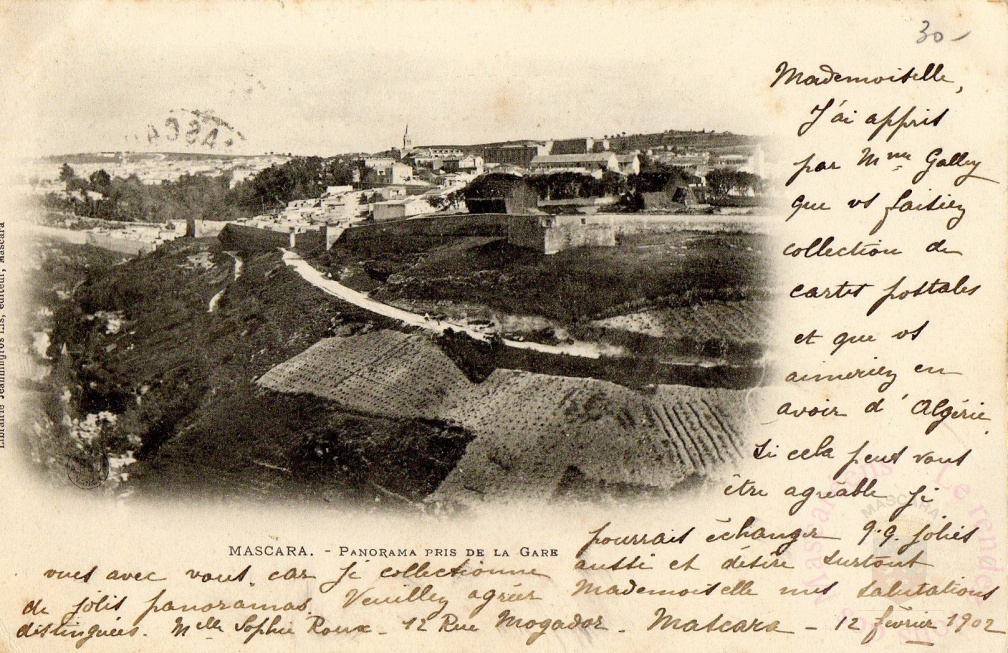 30-
Mademoiselle,
J'ai appris
par Mme Galley
que vs faisiez
collection de
cartes postales
et que vs
aimeriez en
avoir d'Algérie.
Si cela peut vous
être agréable je
MASCARA. - PANORAMA PRIS DE LA GARE
pourrais échanger q.q. jolies
vues avec vous, car je collectionne aussi et désire surtout
de jolis panoramas. Veuillez agréer Mademoiselle mes salutations
distinguées. Melle Sophie Roux - 12 Rue Mogador. Mascara - 12 février 1902
Librairie Jeanningros Lis, éditeur, Mascara
MASCARA
Le rendez